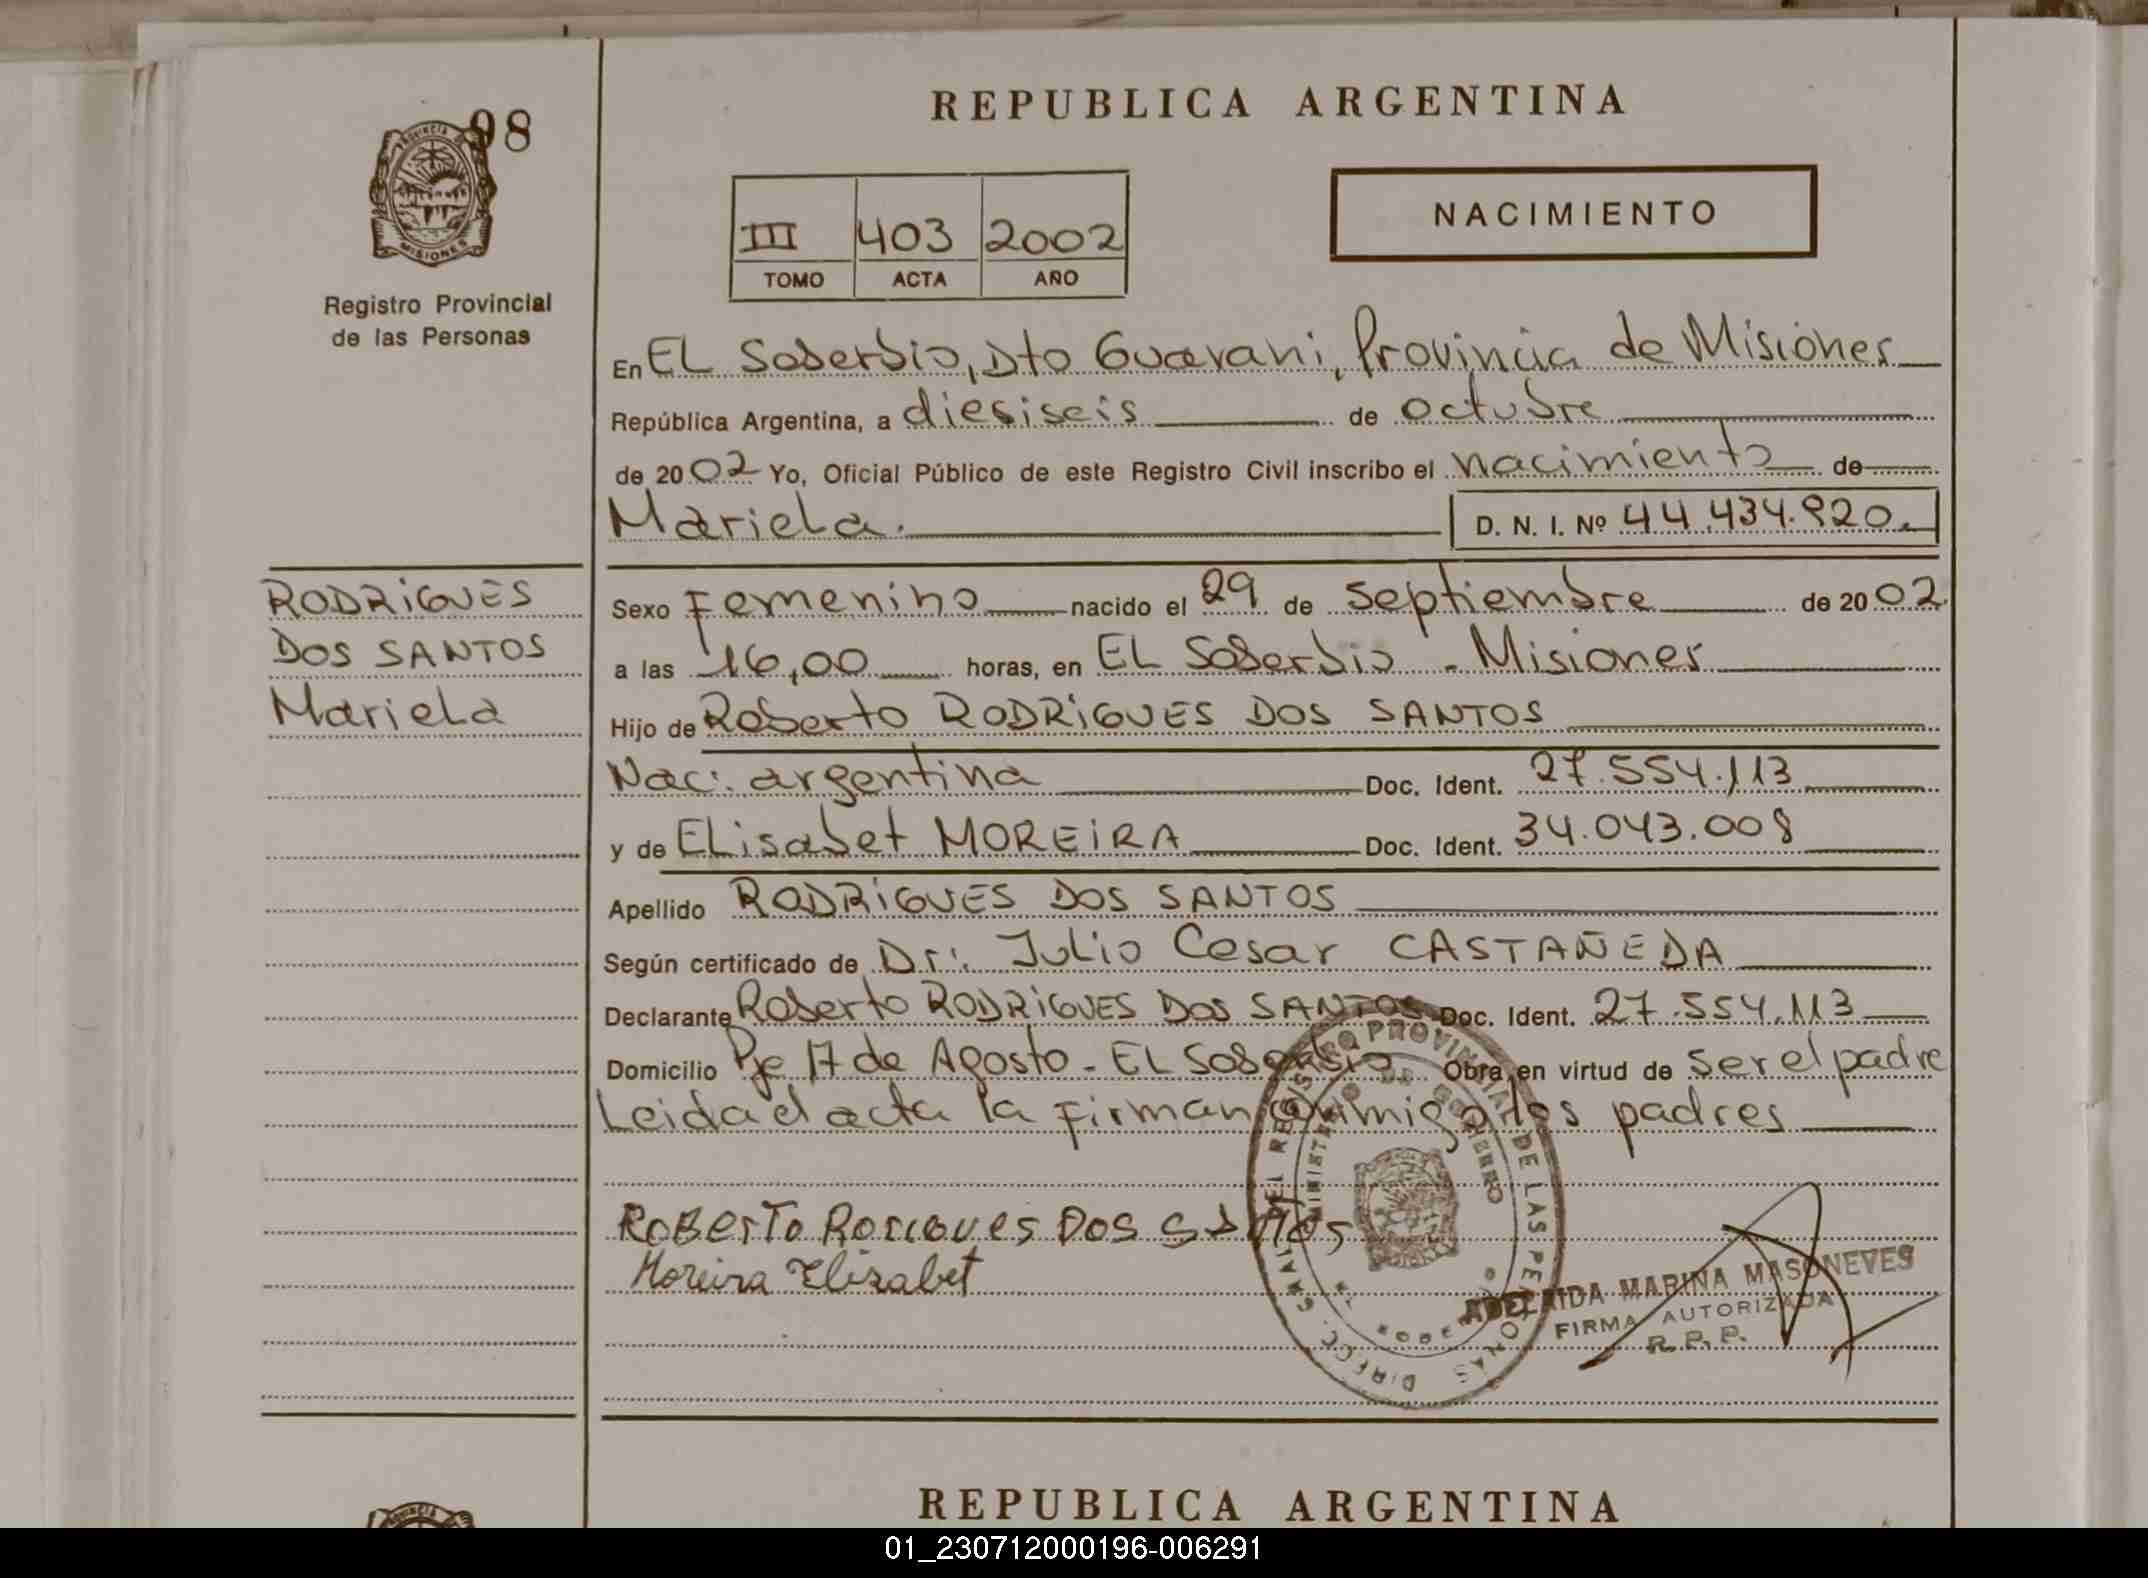 98
PROVINCIA DE
MISIONES
Registro Provincial
de las Personas
REPUBLICA ARGENTINA
III 403 2002
TOMO ACTA AÑO
NACIMIENTO
En EL Soberbio, Dto Guarani, Provincia de Misiones
República Argentina, a diesiseis de octubre
de 2002 Yo, Oficial Público de este Registro Civil inscribo el nacimiento de
Mariela. D. N. I. Nº 44.434.920.
RODRIGUES
DOS SANTOS
Mariela
Sexo Femenino nacido el 29 de septiembre de 2002
a las 16,00 horas, en EL Soberbio - Misiones
Hijo de Roberto RODRIGUES DOS SANTOS
Nac: argentina Doc. Ident. 27.554.113
y de ELisabet MOREIRA Doc. Ident. 34.043.008
Apellido RODRIGUES DOS SANTOS
Según certificado de Dr: Julio Cesar CASTAÑEDA
Declarante Roberto RODRIGUES DOS SANTOS Doc. Ident. 27.554.113
Domicilio Pje 17 de Agosto - EL Soberbio Obra en virtud de ser el padre
Leida el acta la firman conmigo los padres
ROBERTO RODRIGUES DOS SANTOS
Moreira Elizabet
DIRECC. GRAL. DEL REGISTRO PROVINCIAL DE LAS PERSONAS
MINISTERIO DE GOBIERNO
ADELAIDA MARINA MASONEVES
FIRMA AUTORIZADA
R. P. P.
REPUBLICA ARGENTINA
01_230712000196-006291